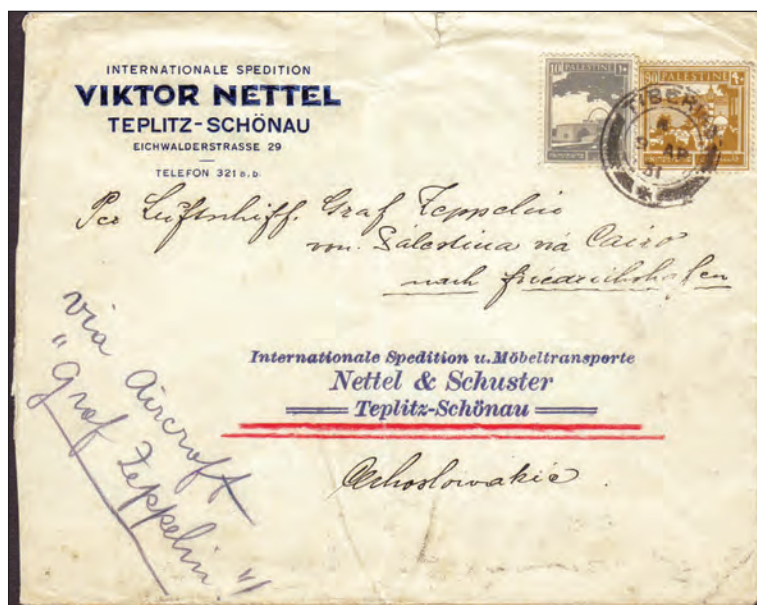 INTERNATIONALE SPEDITION
VIKTOR NETTEL
TEPLITZ-SCHÖNAU
EICHWALDERSTRASSE 29
TELEFON 321 a.b.
10 PALESTINE ١٠
90 PALESTINE ٩٠
TIBERIAS
AP
31
Per Luftschiff. Graf Zeppelin
von Palestina via Cairo
nach Friedrichshafen
via Aircroft
"Graf Zeppelin"
Internationale Spedition u. Möbeltransporte
Nettel & Schuster
Teplitz-Schönau